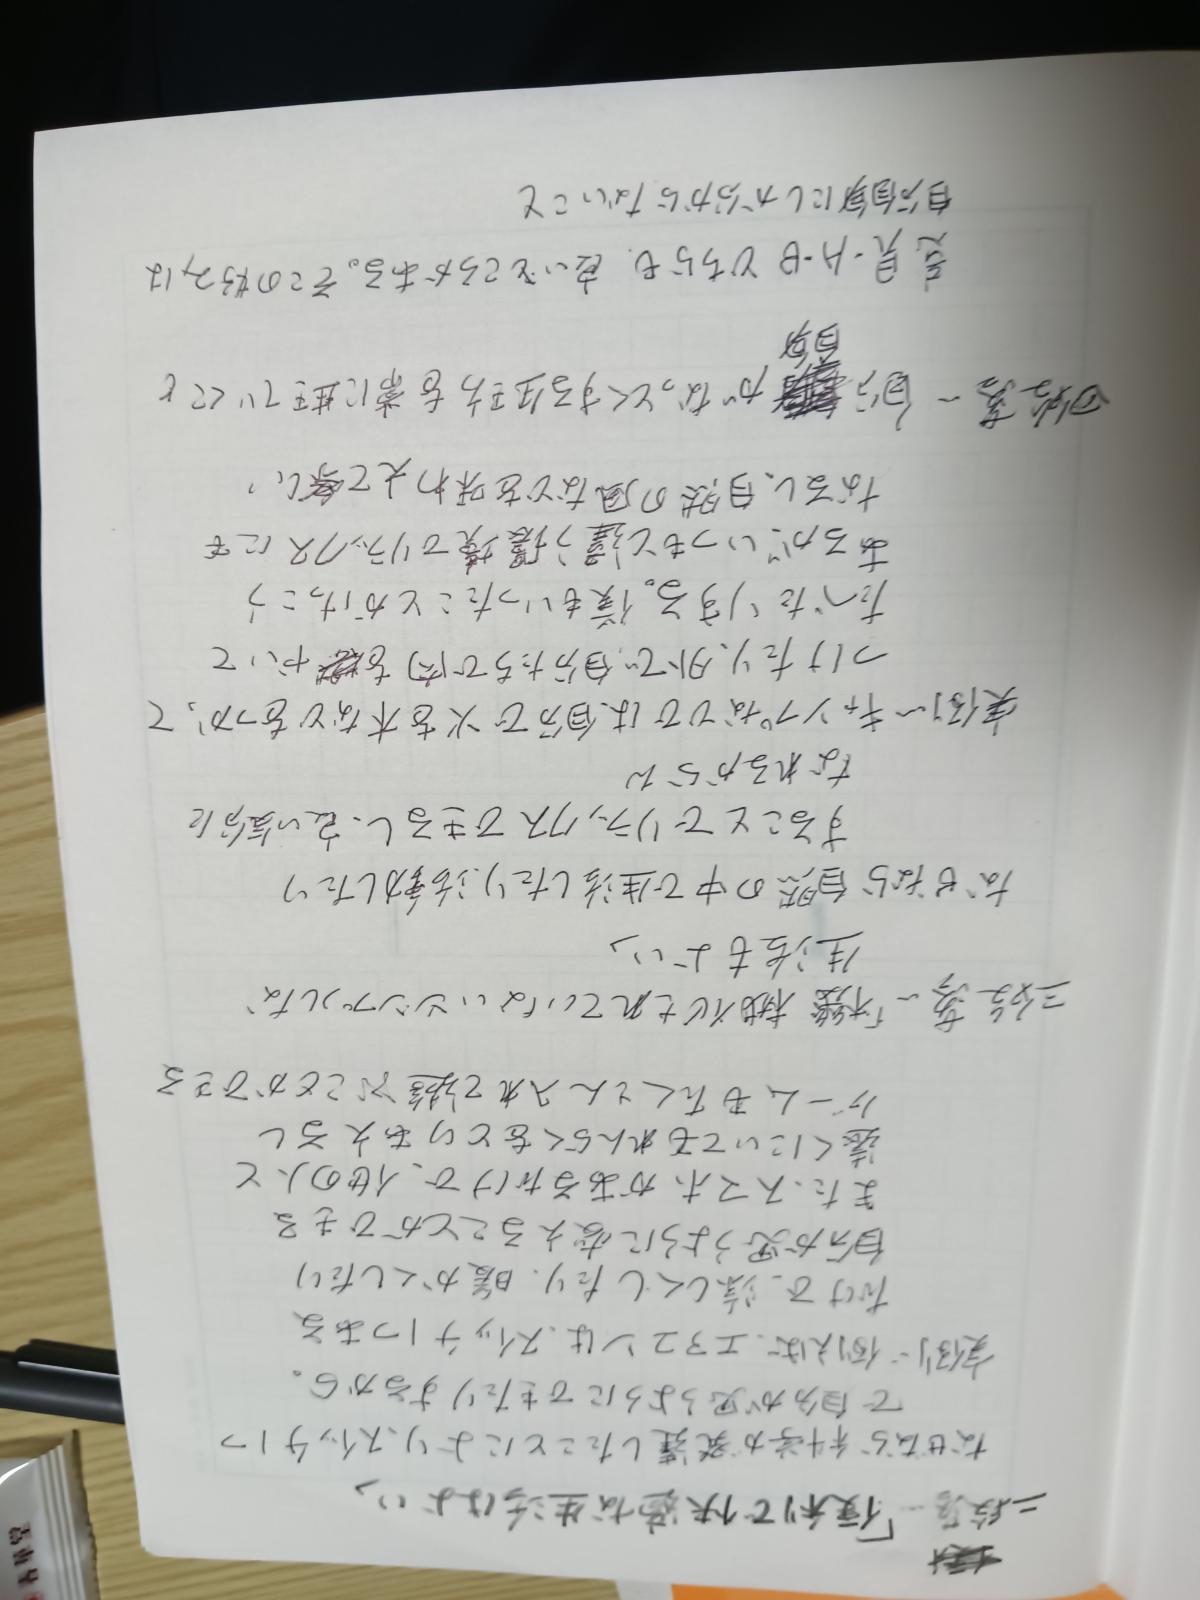 二段落〜「便利で快適な生活はよい」
なぜなら科学が発達したことにより、スイッチ1つ
で自分が思うようにできたりするから。
実例〜例えば、エアコンは、スイッチ1つある
だけで、涼しくしたり、暖かくしたり
自分が思うように変えることができる
また、スマホがあるだけで、他の人と
遠くにいてもれんらくをとりあえるし
ゲームもたくさん入れて遊ぶことができる
三段落〜「機械化されていないシンプルな
生活もよい」
なぜなら自然の中で生活したり、活動したり
することでリラックスできるし、良い気分に
なれるから
実例〜キャンプなどでは、自分で火を木などをつかって
つけたり、外で、自分たちで肉をやいて
たべたりする。僕もいったことがけっこう
あるが、いつもと違う環境でリラックスにも
なるし、自然の風などを味わえて楽しい
四段落〜自分自身がなっとくする生き方を常に生きていくこと
意見・A・Bどちらも、良いところがある。そこの好みは
自分自身にしか分からないこと